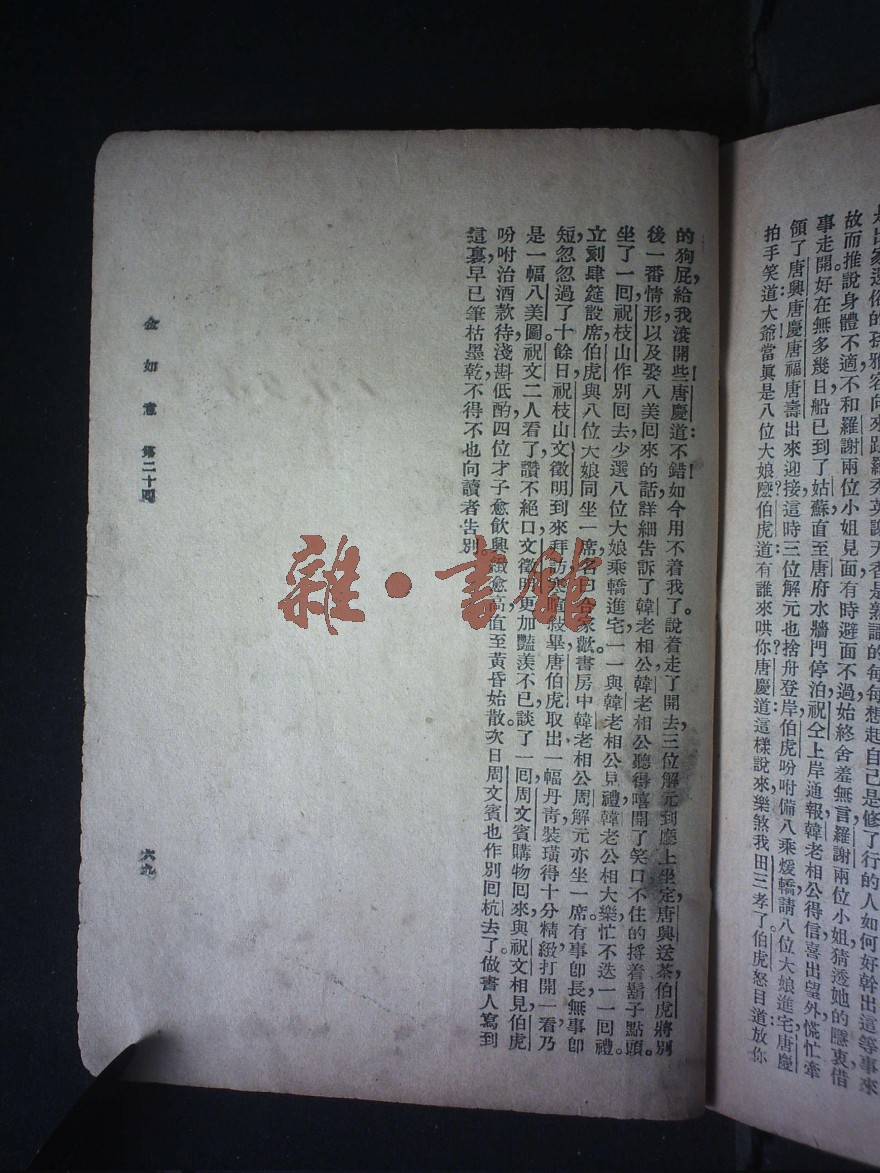 故而推說身體不適不和羅謝兩位小姐見面有時避面不過始終含羞無言羅謝兩位小姐猜透她的隱衷借
事走開好在無多幾日船已到了姑蘇直至唐府水牆門停泊祝仝上岸通報韓老相公得信喜出望外慌忙牽
領了唐興唐慶唐福唐壽出來迎接這時三位解元也捨舟登岸伯虎吩咐備八乘煖轎請八位大娘進宅唐慶
拍手笑道大爺當眞是八位大娘麽伯虎道有誰來哄你唐慶道這樣說來樂煞我田三孝了伯虎怒目道放你
的狗屁給我滾開些唐慶道不錯如今用不着我了。說着走了開去三位解元到廳上坐定唐興送茶伯虎將別
後一番情形以及娶八美回來的話詳細告訴了韓老相公韓老相公聽得嘻開了笑口不住的捋着鬍子點頭。
坐了一回祝枝山作別回去少選八位大娘乘轎進宅一一與韓老相公見禮韓老公相大樂忙不迭一一回禮
立刻肆筵設席伯虎與八位大娘同坐一席名曰合家歡書房中韓老相公周解元亦坐一席有事卽長無事卽
短忽忽過了十餘日祝枝山文徵明到來拜訪寒暄敍畢唐伯虎取出一幅丹靑裝璜得十分精緻打開一看乃
是一幅八美圖祝文二人看了讚不絕口文徵明更加豔羨不已談了一回周文賓購物回來與祝文相見伯虎
吩咐治酒款待淺斟低酌四位才子愈飮興緻愈高直至黃昏始散。次日周文賓也作別回杭去了。做書人寫到
這裏早已筆枯墨乾不得不也向讀者告別。
金如意 第二十回
六九
雜·書館